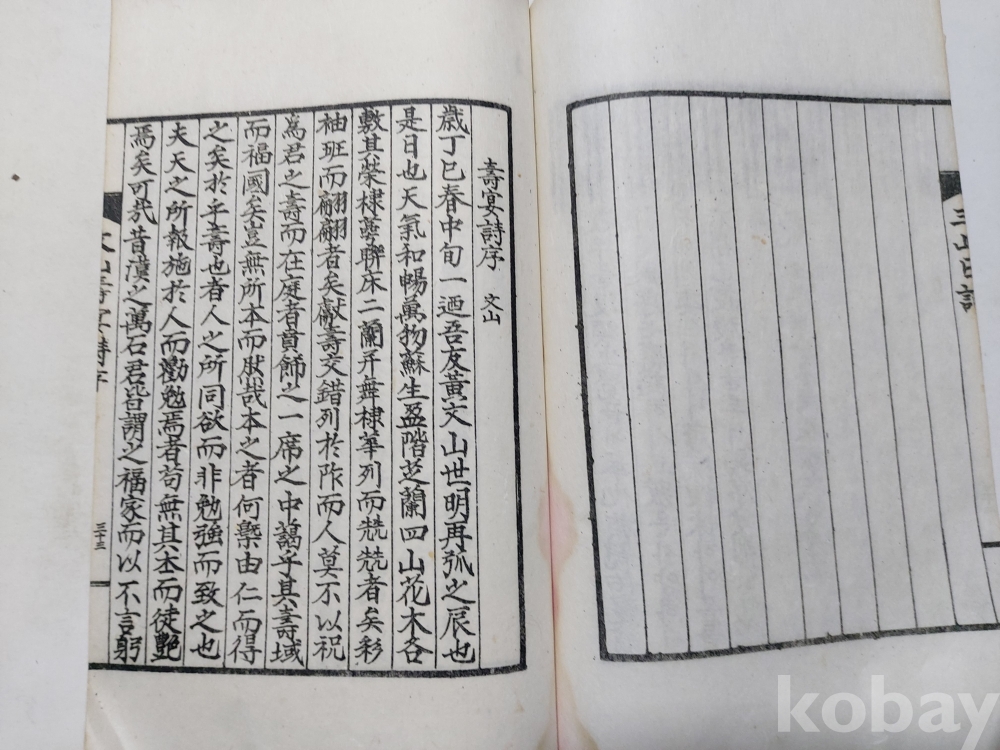 三山日記
壽宴詩序 文山
歲丁巳春中旬一迺吾友黃文山世明再弧之辰也
是日也天氣和暢萬物蘇生盈階芝蘭四山花木各
敷其榮棣萼聯床二蘭并舞棣華列而兟兟者矣彩
袖班而翩翩者矣獻壽交錯列於阼而人莫不以祝
爲君之壽而在庭者賁飾之一席之中藹乎其壽域
而福國矣豈無所本而肰哉本之者何槩由仁而得
之矣於乎壽也者人之所同欲而非勉強而致之也
夫天之所報施於人而勸勉焉者苟無其本而徒艶
焉矣可㢤昔漢之萬石君皆謂之福家而以不言躬
文山壽宴詩序
三十三
kobay